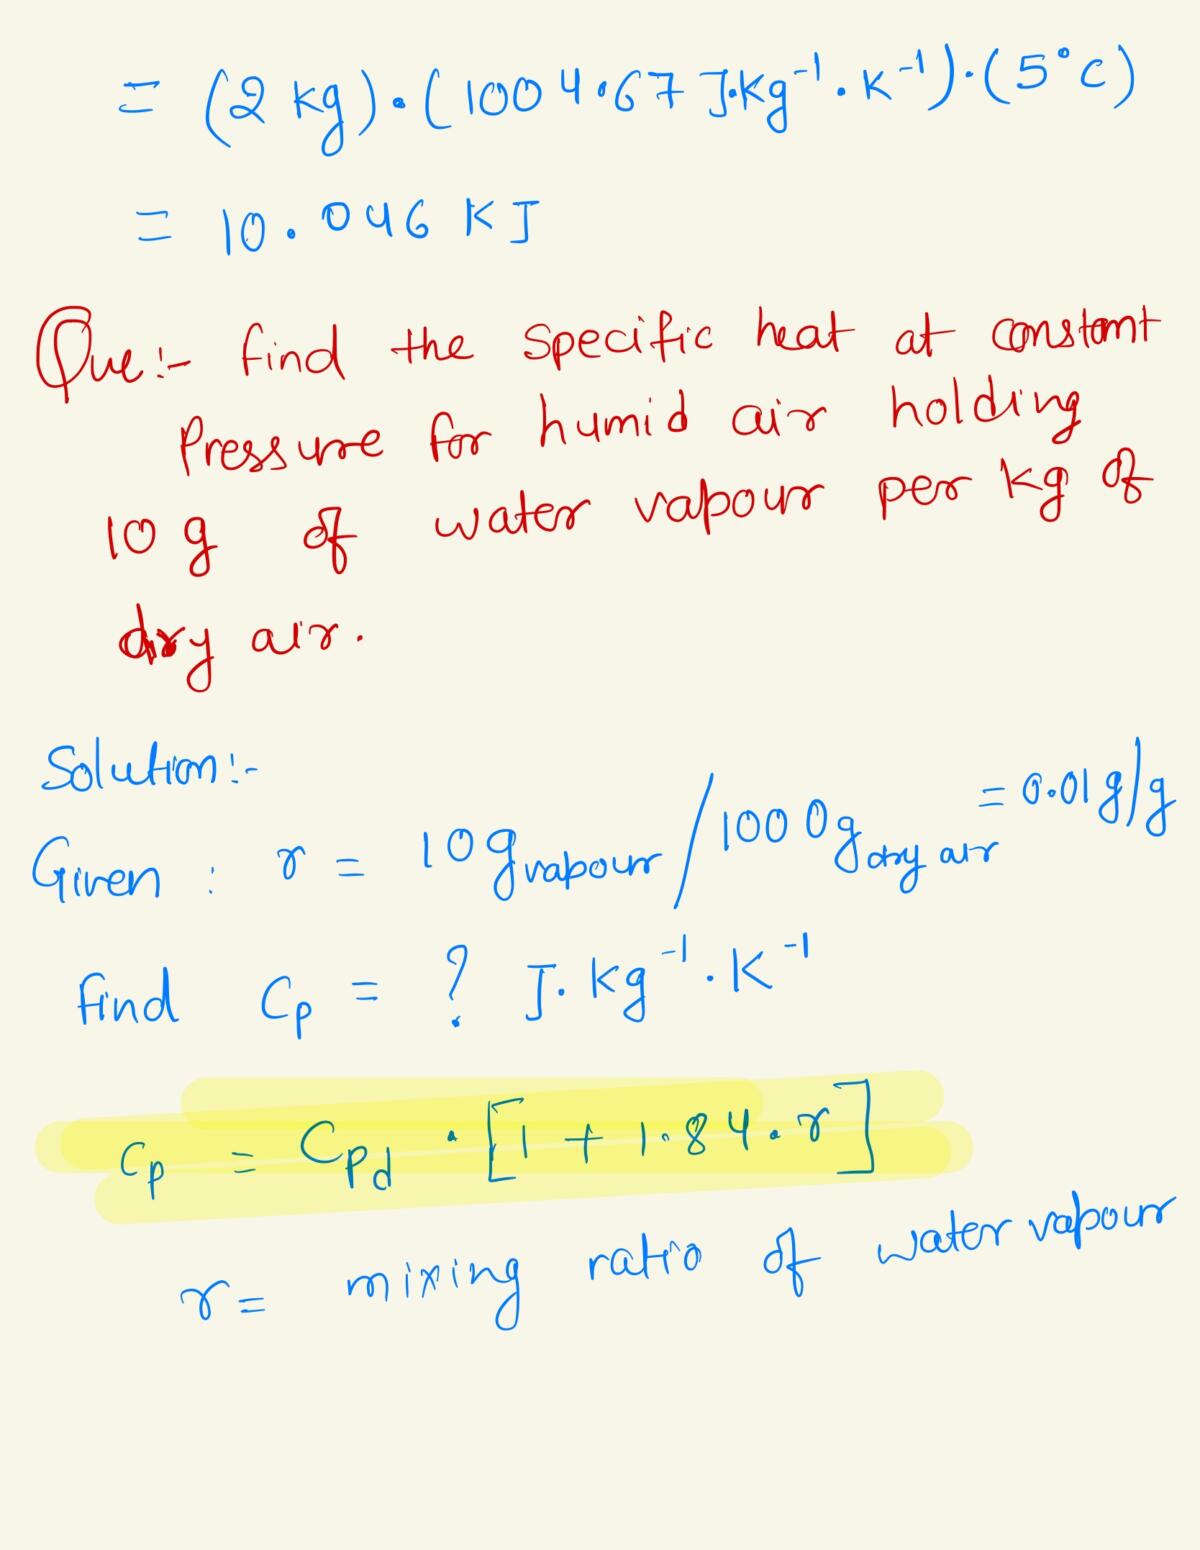 = (2 kg)·(1004.67 J·kg⁻¹·K⁻¹)·(5°C)
= 10.046 KJ
Que:- find the specific heat at constant
Pressure for humid air holding
10 g of water vapour per kg of
dry air.
Solution:-
Given : r = 10g vapour / 1000g dry air = 0.01 g/g
find Cp = ? J·kg⁻¹·K⁻¹
Cp = Cpd · [1 + 1.84·r]
r = mixing ratio of water vapour